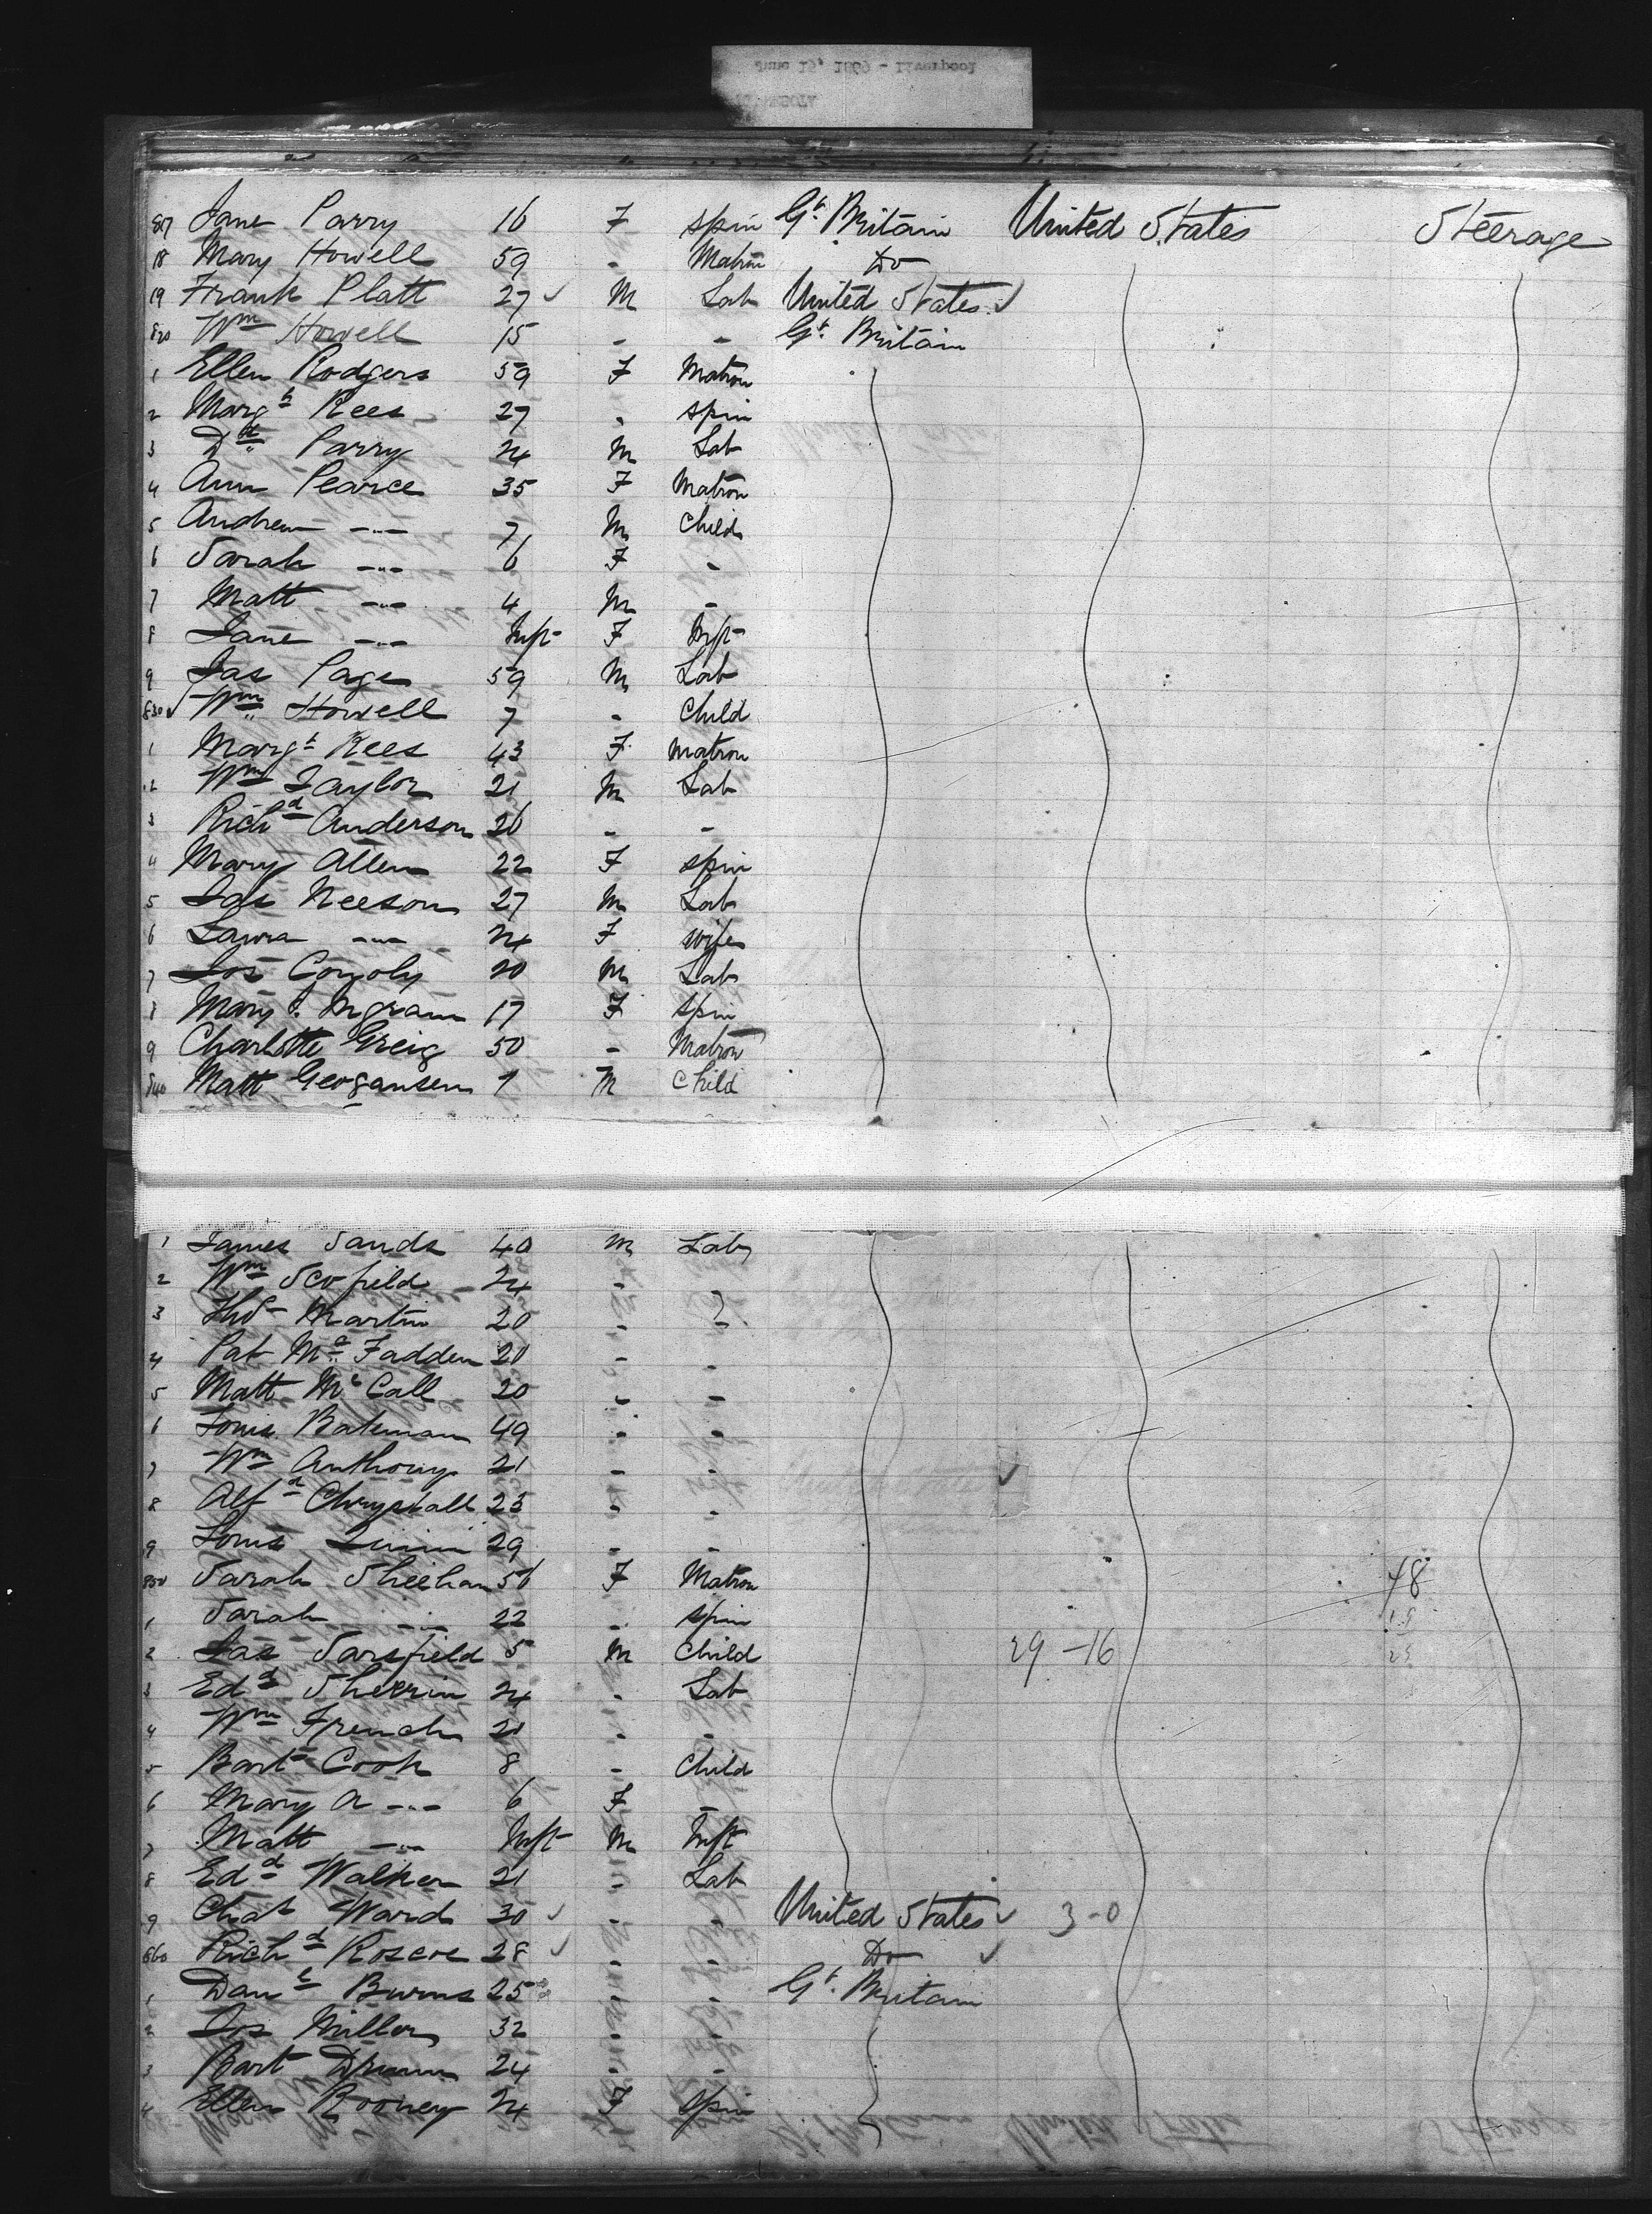 June 15, 1869 - Liverpool
817 Jane Parry 16 F spin Gt. Britain United States Steerage
18 Mary Howell 59 " Matron Do
19 Frank Platt 27 ✓ M Lab United States ✓
820 Wm Howell 15 " " Gt. Britain
1 Ellen Rodgers 59 F Matron
2 Margt Rees 27 " spin
3 Parry 24 M Lab
4 Ann Pearce 35 F Matron
5 Andrew -"- 7 M Child
6 Sarah -"- 6 F "
7 Matt -"- 4 M "
8 Jane -"- Inft F Inft
9 Jas Page 59 M Lab
830 ✓ Wm Howell 7 " Child
1 Margt Rees 43 F Matron
2 Wm Taylor 21 M Lab
3 Richd Anderson 26 " "
4 Mary Allen 22 F spin
5 Jas Neeson 27 M Lab
6 Laura -"- 24 F Wife
7 Jos 20 M Lab
8 Mary J. Ingram 17 F spin
9 Charlotte Greig 50 " Matron
840 Matt Georgansen 7 M Child
1 James Sands 40 M Lab
2 Wm Scofield 24 "
3 Thos Martin 20 " "
4 Pat Mc Fadden 20 " "
5 Matt Mc Call 20 " "
6 Louis Bateman 49 " "
7 Wm Anthony 21 " " ✓
8 Alfd Chrystall 23 " "
9 Louis 29 " "
850 Sarah Sheehan 56 F Matron 48
1 Sarah -"- 22 " spin
2 Jas Sarsfield 5 M Child 29 - 16
3 Edd Sherrin 24 " Lab
4 Wm French 21 " "
5 Bart Cook 8 " Child
6 Mary A -"- 6 F "
7 Matt -"- Inft M Inft
8 Edd Walker 21 " Lab
9 Chas Ward 30 ✓ " " United States ✓ 3-0
860 Richd Roscoe 28 ✓ " " Do ✓
1 Danl Burns 25 " " Gt. Britain
2 Jos Miller 32 " "
3 Bart 24 " "
4 Ellen Rooney 24 F spin